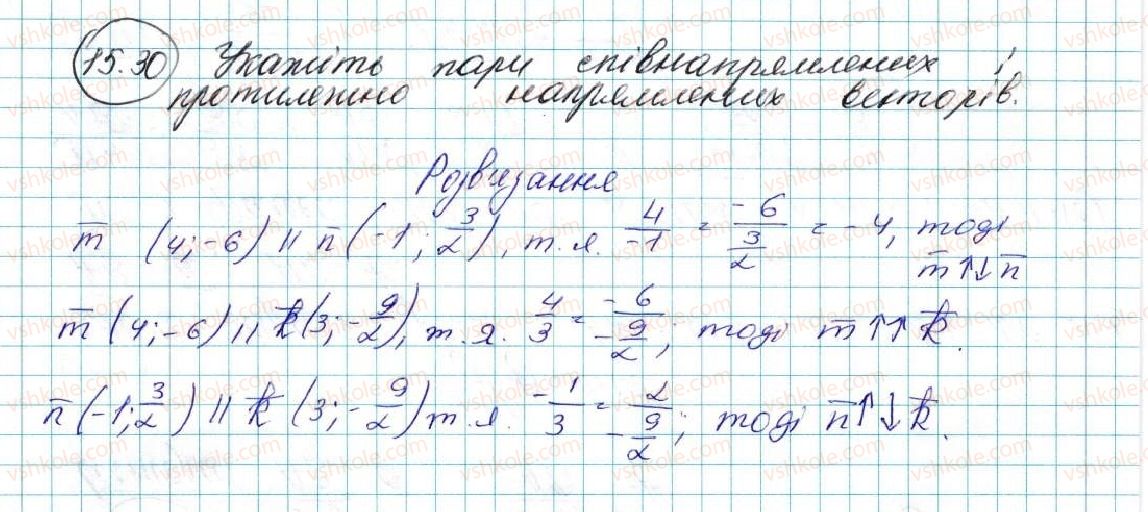 15.30 Укажіть пари співнапрямлених і
протилежно напрямлених векторів.
Розв'язання
m̅ (4;-6) || n̅ (-1; 3/2), т.я. 4/-1 = -6/(3/2) = -4, тоді
m̅ ↑↓ n̅
m̅ (4;-6) || k̅ (3; -9/2), т.я. 4/3 = -6/(-9/2); тоді m̅ ↑↑ k̅.
n̅ (-1; 3/2) || k̅ (3; -9/2) т.я. -1/3 = 2/(-9/2); тоді n̅ ↑↓ k̅.